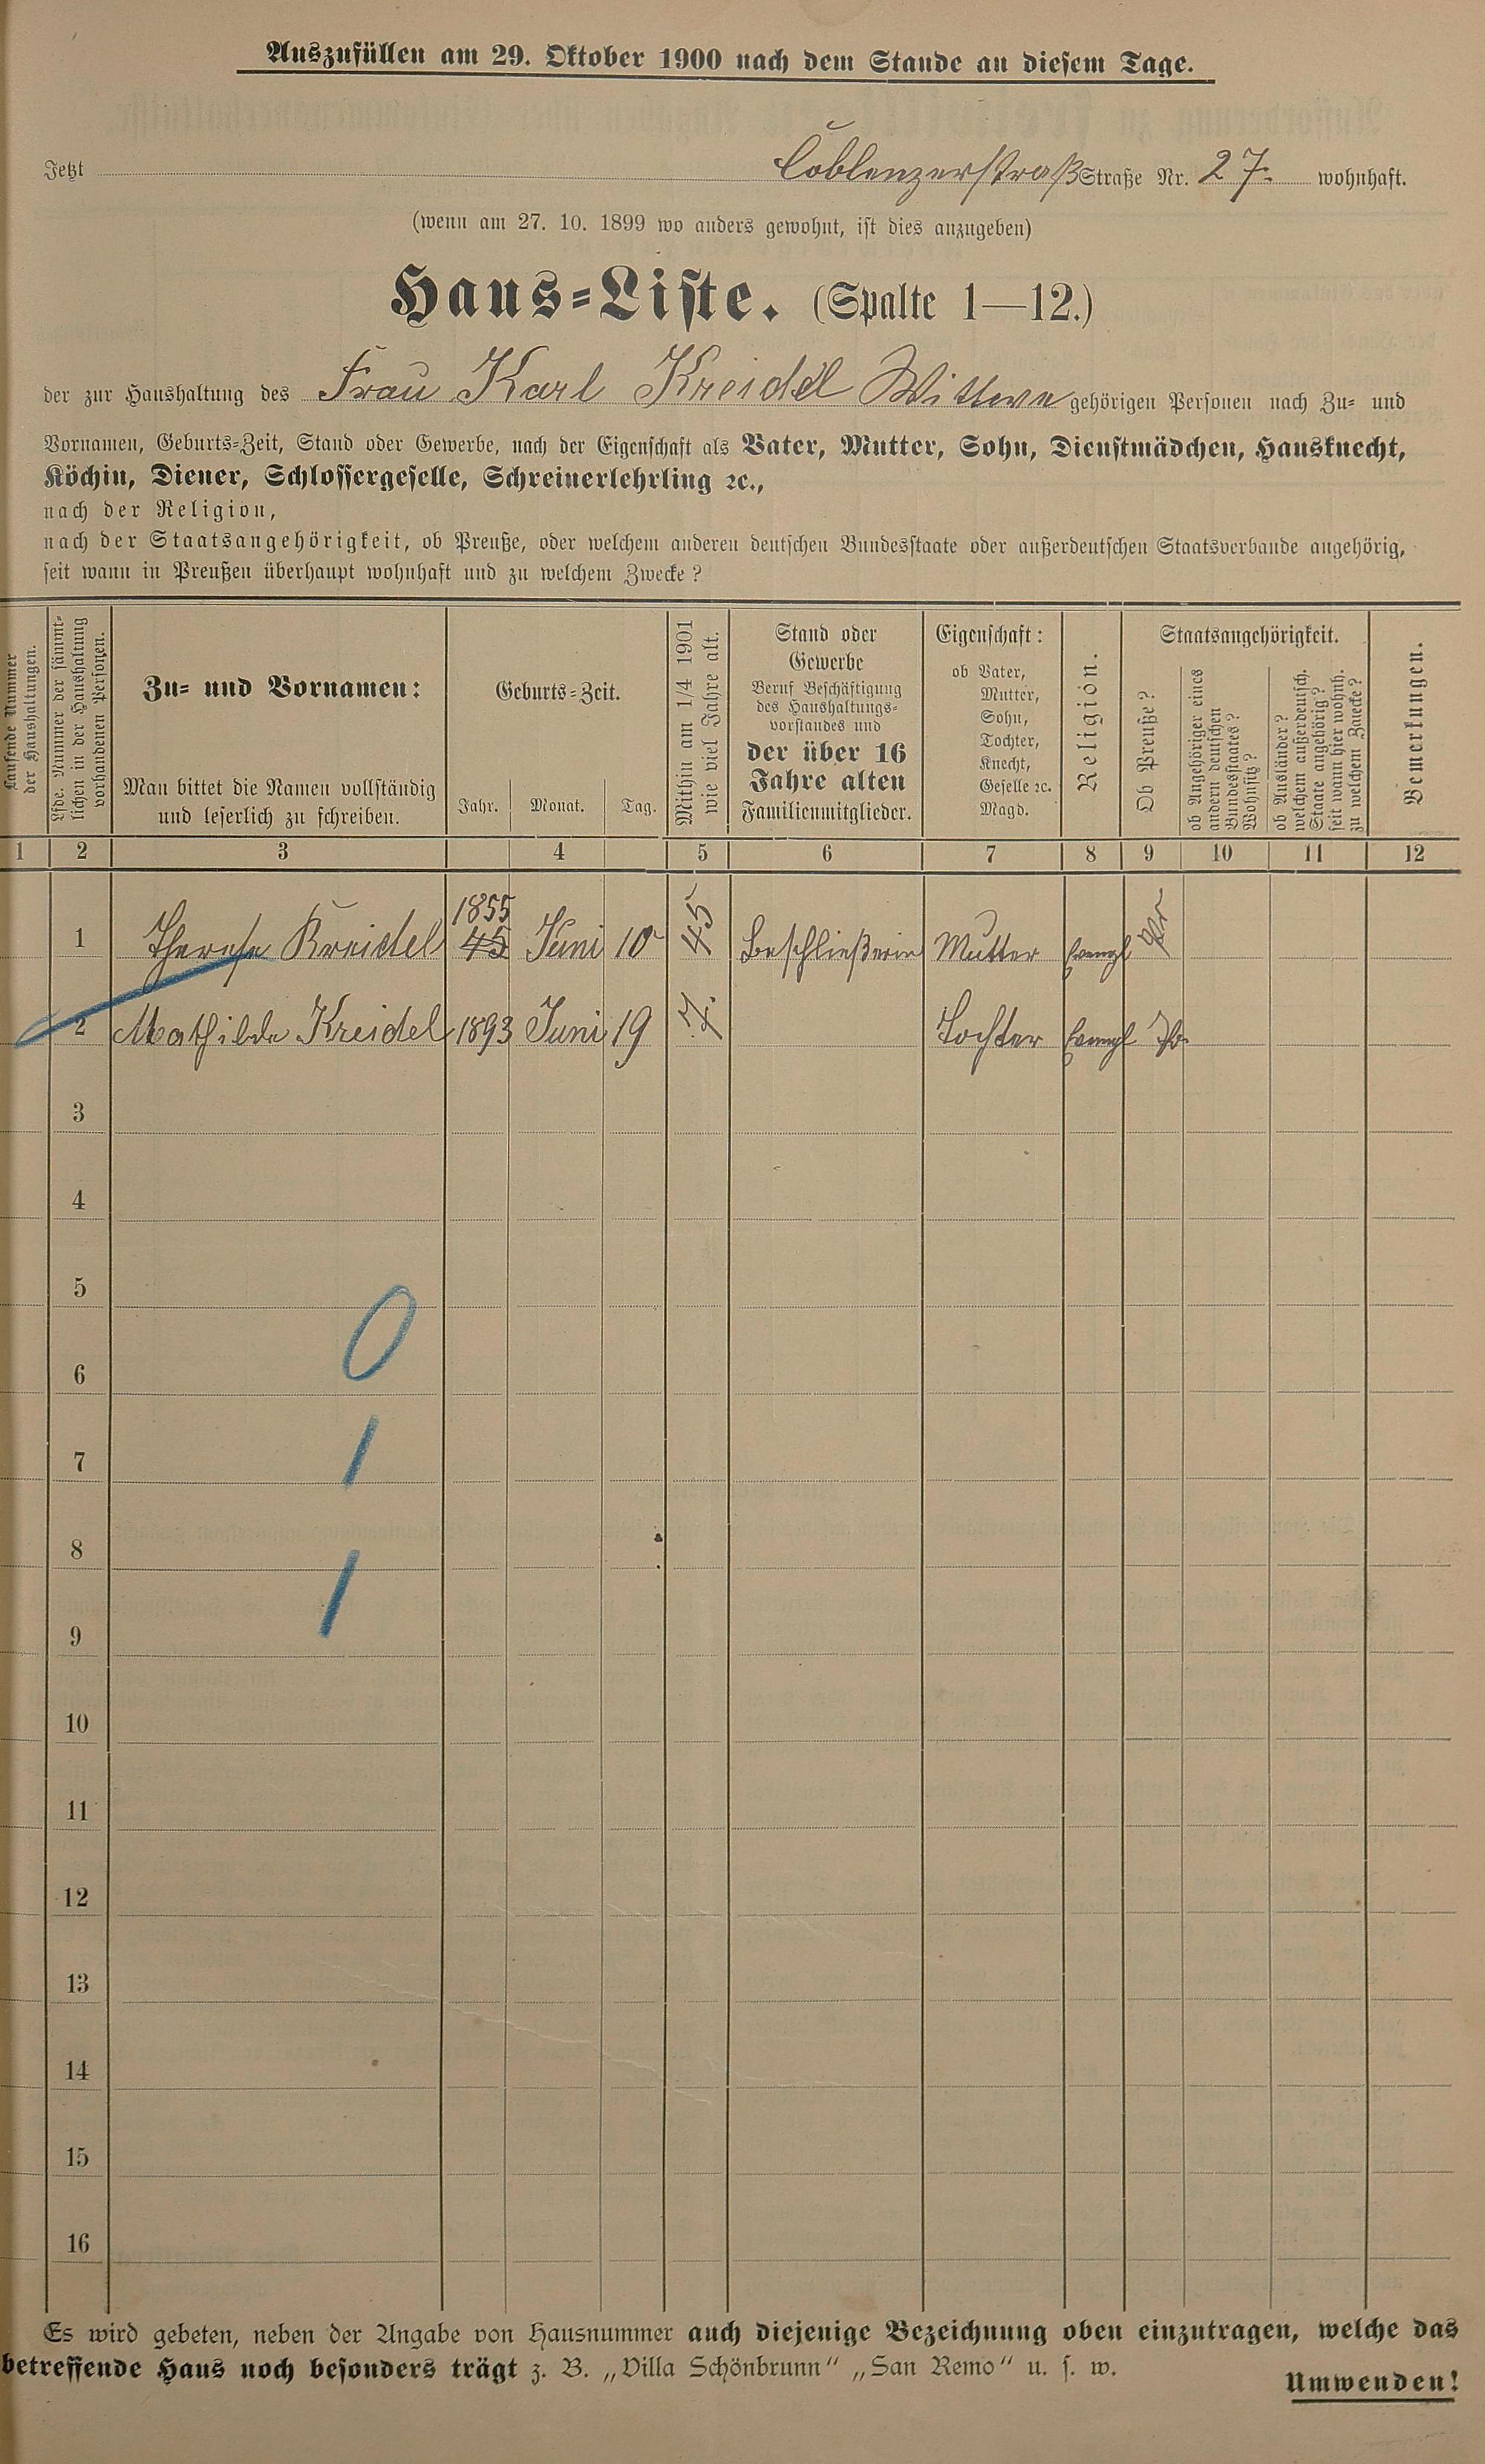 Auszufüllen am 29. Oktober 1900 nach dem Stande an diesem Tage.
Jetzt Coblenzerstraß Straße Nr. 27. wohnhaft.
(wenn am 27. 10. 1899 wo anders gewohnt, ist dies anzugeben)
Haus-Liste. (Spalte 1—12.)
der zur Haushaltung des Frau Karl Kreidel Wittwe gehörigen Personen nach Zu- und
Vornamen, Geburts-Zeit, Stand oder Gewerbe, nach der Eigenschaft als Vater, Mutter, Sohn, Dienstmädchen, Hausknecht,
Köchin, Diener, Schlossergeselle, Schreinerlehrling ꝛc.,
nach der Religion,
nach der Staatsangehörigkeit, ob Preuße, oder welchem anderen deutschen Bundesstaate oder außerdeutschen Staatsverbande angehörig,
seit wann in Preußen überhaupt wohnhaft und zu welchem Zwecke?
Laufende Nummer
der Haushaltungen.
Lfde. Nummer der sämmt-
lichen in der Haushaltung
vorhandenen Personen.
Zu- und Vornamen:
Man bittet die Namen vollständig
und leserlich zu schreiben.
Geburts-Zeit.
Jahr. Monat. Tag.
Mithin am 1/4 1901
wie viel Jahre alt.
Stand oder
Gewerbe
Beruf Beschäftigung
des Haushaltungs-
vorstandes und
der über 16
Jahre alten
Familienmitglieder.
Eigenschaft:
ob Vater,
Mutter,
Sohn,
Tochter,
Knecht,
Geselle ꝛc.
Magd.
Religion.
Staatsangehörigkeit.
Ob Preuße?
ob Angehöriger eines
andern deutschen
Bundesstaates?
Wohnsitz?
ob Ausländer?
welchem außerdeutsch.
Staate angehörig?
seit wann hier wohnh.
zu welchem Zwecke?
Bemerkungen.
1 2 3 4 5 6 7 8 9 10 11 12
1855
1 Therese Kreidel 45 Juni 10 45 Beschließerin Mutter Evangl Pr
2 Mathilde Kreidel 1893 Juni 19 7. Tochter Evangl
3
4
5
0
6
1
7
8
1
9
10
11
12
13
14
15
16
Es wird gebeten, neben der Angabe von Hausnummer auch diejenige Bezeichnung oben einzutragen, welche das
betreffende Haus noch besonders trägt z. B. „Villa Schönbrunn“ „San Remo“ u. s. w.
Umwenden!